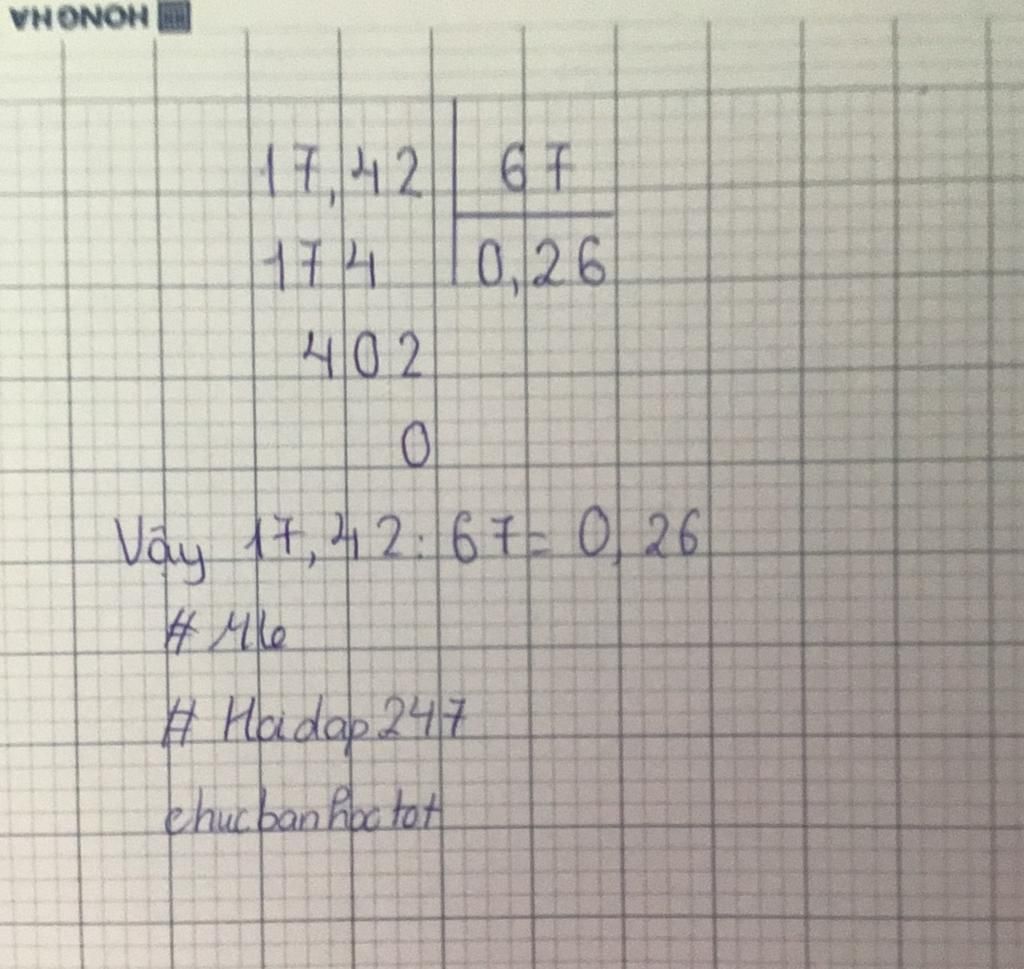 HONG HA
17,42 67
174 0,26
402
0
Vậy 17,42 : 67 = 0,26
# Hoidap247
chucbanhoctot